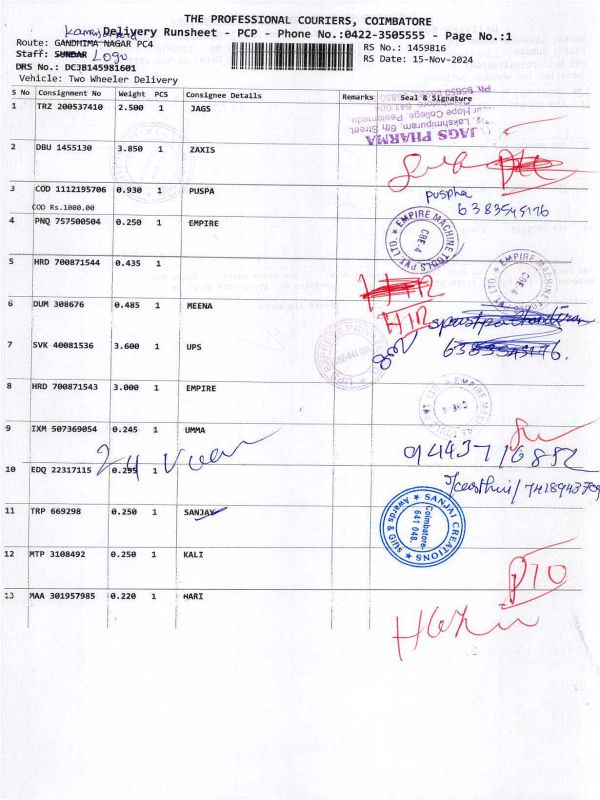 THE PROFESSIONAL COURIERS, COIMBATORE
Delivery Runsheet - PCP - Phone No.:0422-3505555 - Page No.:1
Route: GANDHIMA NAGAR PC4
RS No.: 1459816
Staff: SUNDAR Logu
RS Date: 15-Nov-2024
DRS No.: DCJB145981601
Vehicle: Two Wheeler Delivery
S No Consignment No Weight PCS Consignee Details Remarks Seal & Signature
1 TRZ 200537410 2.500 1 JAGS
JAGS PHARMA
Lakshmipuram, 6th Street,
Hope College, Peelamedu
2 DBU 1455130 3.850 1 ZAXIS
3 COD 1112195706 0.930 1 PUSPA
puspha
6383545176
COD Rs.1000.00
4 PNQ 757500504 0.250 1 EMPIRE
EMPIRE MACHINE TOOLS PVT LTD. CBE-4
5 HRD 700871544 0.435 1
EMPIRE MACHINE
6 DUM 308676 0.485 1 MEENA
HIR
7 SVK 40081536 3.600 1 UPS
6383545176.
8 HRD 700871543 3.000 1 EMPIRE
EMPIRE MACHINE TOOLS PVT LTD. CBE-4
9 IXM 507369054 0.245 1 UMMA
10 EDQ 22317115 0.295 1
11 TRP 669298 0.250 1 SANJAY
SANJAI CREATIONS Awards & Gifts Coimbatore- 641 048.
12 MTP 3108492 0.250 1 KALI
PTO
13 MAA 301957985 0.220 1 HARI